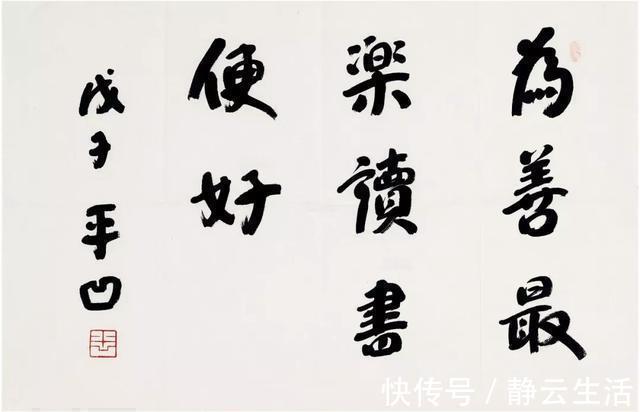 為善最
楽讀書
便好
戊子平凹
快传号/静云生活